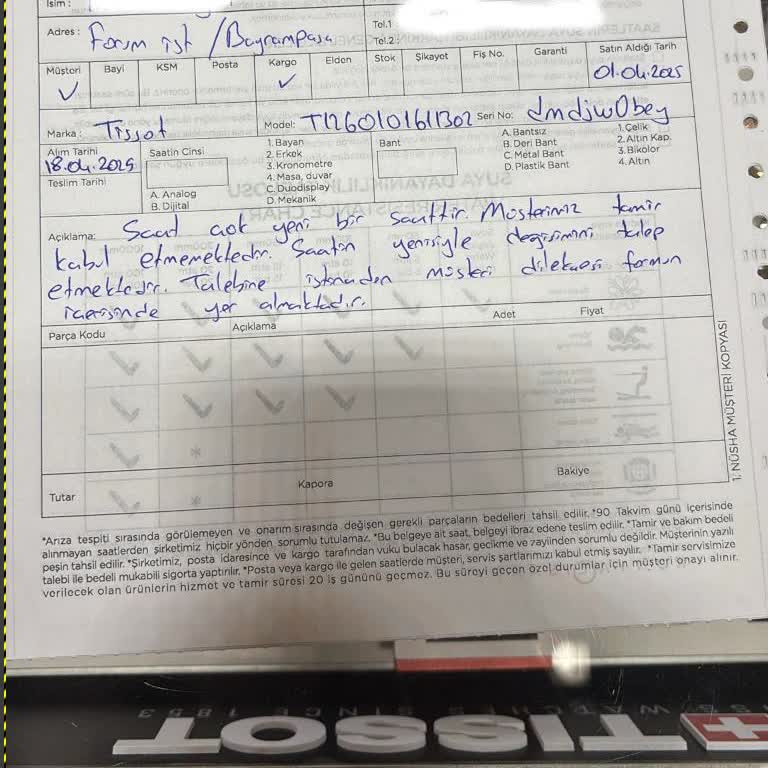 İsim :
Adres : Forum ist / Bayrampaşa
Tel.1 :
Tel.2 :
Müşteri Bayi KSM Posta Kargo Elden Stok Şikayet Fiş No. Garanti Satın Aldığı Tarih
✓ ✓ 01.04.2025
Marka : Tissot Model: T1260101611302 Seri No: dmdjw0bey
Alım Tarihi
18.04.2025
Teslim Tarihi
Saatin Cinsi
A. Analog
B. Dijital
1. Bayan
2. Erkek
3. Kronometre
4. Masa, duvar
C. Duodisplay
D. Mekanik
Bant
A. Bantsız
B. Deri Bant
C. Metal Bant
D. Plastik Bant
1. Çelik
2. Altın Kap.
3. Bikolor
4. Altın
Açıklama: Saat çok yeni bir saattir. Müşterimiz tamir
kabul etmemektedir. Saatin yenisiyle değişimini talep
etmektedir. Talebine istinaden müşteri dilekçesi formun
içerisinde yer almaktadır.
Parça Kodu Açıklama Adet Fiyat
Tutar Kapora Bakiye
1. NÜSHA MÜŞTERİ KOPYASI
*Arıza tespiti sırasında görülemeyen ve onarım sırasında değişen gerekli parçaların bedelleri tahsil edilir. *90 Takvim günü içerisinde
alınmayan saatlerden şirketimiz hiçbir yönden sorumlu tutulamaz. *Bu belgeye ait saat, belgeyi ibraz edene teslim edilir. *Tamir ve bakım bedeli
peşin tahsil edilir. *Şirketimiz, posta idaresince ve kargo tarafından vuku bulacak hasar, gecikme ve zayiinden sorumlu değildir. Müşterinin yazılı
talebi ile bedeli mukabili sigorta yaptırılır. *Posta veya kargo ile gelen saatlerde müşteri, servis şartlarımızı kabul etmiş sayılır. *Tamir servisimize
verilecek olan ürünlerin hizmet ve tamir süresi 20 iş gününü geçmez. Bu süreyi geçen özel durumlar için müşteri onayı alınır.
TISSOT
SWISS WATCHES SINCE 1853